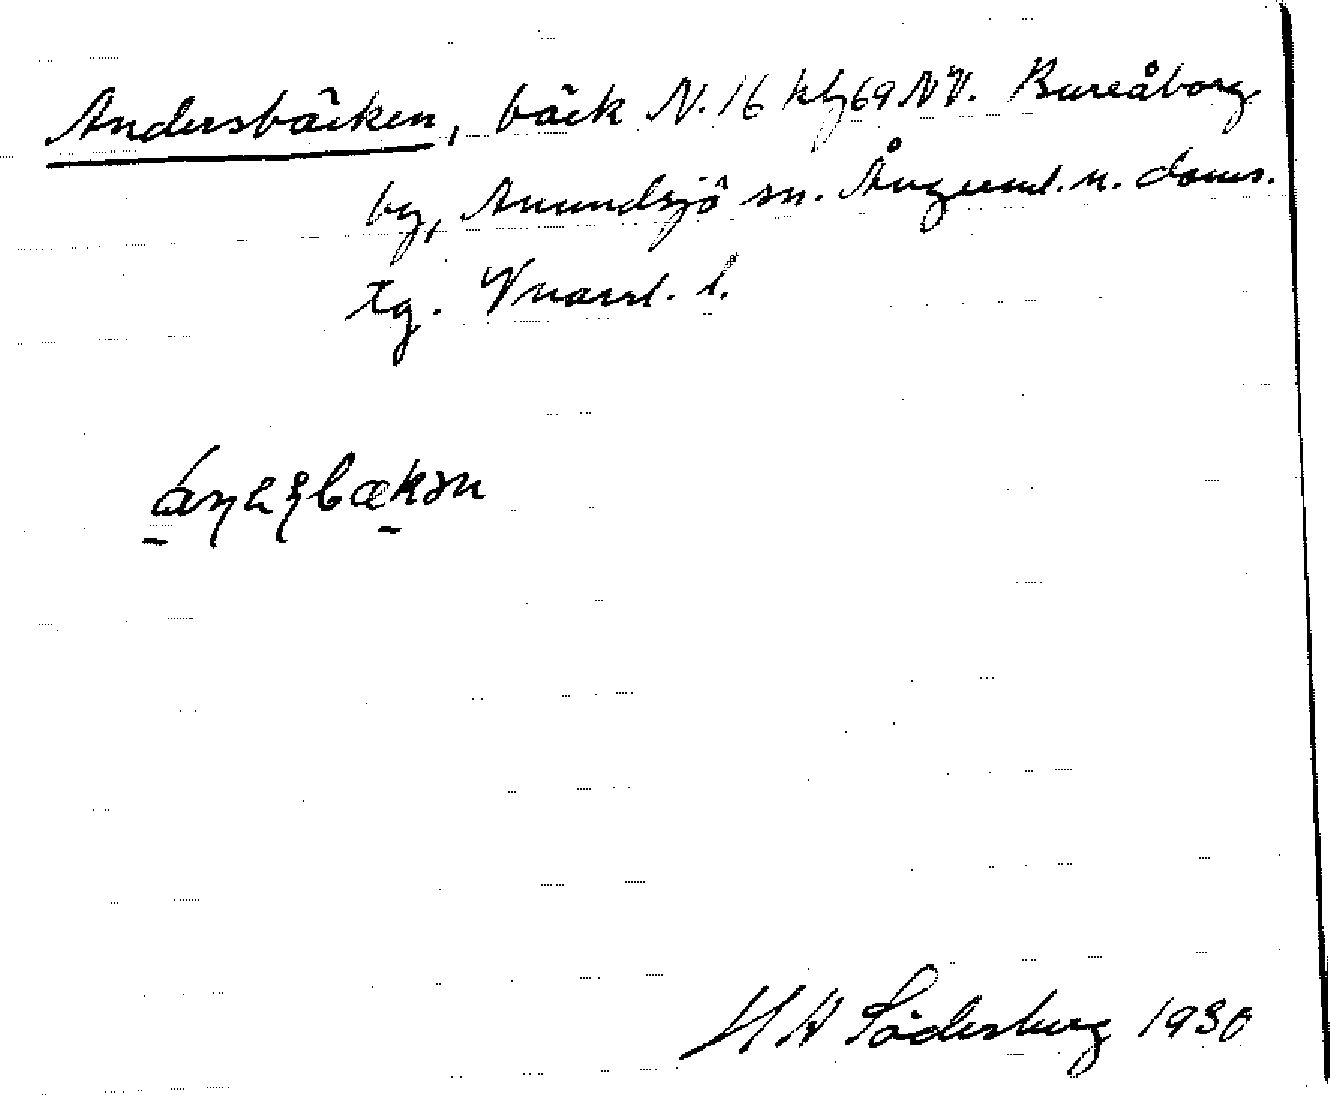 Andersbäcken, bäck N. 16 kbl 69 NV. Bureåborg
by, Anundsjö sn. Ångerml. n. doms.
tg. Vnorrl. l.
H A Söderberg 1930